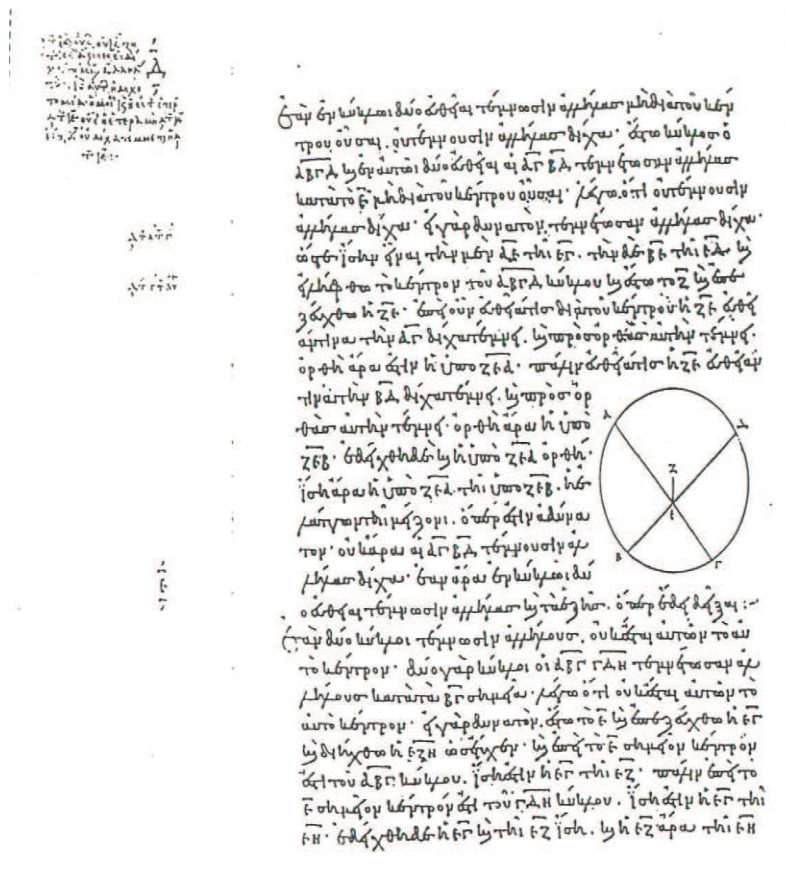 Δ
Ἐὰν ἐν κύκλωι δύο εὐθεῖαι τέμνωσιν ἀλλήλας μὴ διὰ τοῦ κέν
τρου οὖσαι, οὐ τέμνουσιν ἀλλήλας δίχα· ἔστω κύκλος ὁ
ΑΒΓΔ καὶ ἐν αὐτῶι δύο εὐθεῖαι αἱ ΑΓ ΒΔ τεμνέτωσαν ἀλλήλας
κατὰ τὸ Ε μὴ διὰ τοῦ κέντρου οὖσαι· λέγω ὅτι οὐ τέμνουσιν
ἀλλήλας δίχα· εἰ γὰρ δυνατόν, τεμνέτωσαν ἀλλήλας δίχα·
ὥστε ἴσην εἶναι τὴν μὲν ΑΕ τῆι ΕΓ. τὴν δὲ ΒΕ τῆι ΕΔ. καὶ
εἰλήφθω τὸ κέντρον τοῦ ΑΒΓΔ κύκλου καὶ ἔστω τὸ Ζ καὶ ἐπε
ζεύχθω ἡ ΖΕ. ἐπεὶ οὖν εὐθεῖά τις διὰ τοῦ κέντρου ἡ ΖΕ εὐθεῖ
άν τινα τὴν ΑΓ δίχα τέμνει, καὶ πρὸς ὀρθὰς αὐτὴν τέμνει·
ὀρθὴ ἄρα ἐστὶν ἡ ὑπὸ ΖΕΑ· πάλιν εὐθεῖά τις ἡ ΖΕ εὐθεῖάν
τινα τὴν ΒΔ δίχα τέμνει, καὶ πρὸς ὀρ
θὰς αὐτὴν τέμνει· ὀρθὴ ἄρα ἡ ὑπὸ
ΖΕΒ· ἐδείχθη δὲ καὶ ἡ ὑπὸ ΖΕΑ ὀρθή·
ἴση ἄρα ἡ ὑπὸ ΖΕΑ τῆι ὑπὸ ΖΕΒ. ἡ ἐ
λάττων τῆι μείζονι. ὅπερ ἐστὶν ἀδύνα
τον· οὐκ ἄρα αἱ ΑΓ ΒΔ τέμνουσιν ἀλ
λήλας δίχα· ἐὰν ἄρα ἐν κύκλωι δύ
ο εὐθεῖαι τέμνωσιν ἀλλήλας καὶ τὰ ἑξῆς. ὅπερ ἔδει δεῖξαι :~
Α Δ Ζ Ε Β Γ
Ε
Ἐὰν δύο κύκλοι τέμνωσιν ἀλλήλους, οὐκ ἔσται αὐτῶν τὸ αὐ
τὸ κέντρον· δύο γὰρ κύκλοι οἱ ΑΒΓ ΓΔΗ τεμνέτωσαν ἀλ
λήλους κατὰ τὰ ΒΓ σημεῖα· λέγω ὅτι οὐκ ἔσται αὐτῶν τὸ
αὐτὸ κέντρον· εἰ γὰρ δυνατόν, ἔστω τὸ Ε καὶ ἐπεζεύχθω ἡ ΕΓ
καὶ διήχθω ἡ ΕΖΗ ὡς ἔτυχεν· καὶ ἐπεὶ τὸ Ε σημεῖον κέντρον
ἐστὶ τοῦ ΑΒΓ κύκλου, ἴση ἐστὶν ἡ ΕΓ τῆι ΕΖ· πάλιν ἐπεὶ τὸ
Ε σημεῖον κέντρον ἐστὶ τοῦ ΓΔΗ κύκλου, ἴση ἐστὶν ἡ ΕΓ τῆι
ΕΗ· ἐδείχθη δὲ ἡ ΕΓ καὶ τῆι ΕΖ ἴση, καὶ ἡ ΕΖ ἄρα τῆι ΕΗ